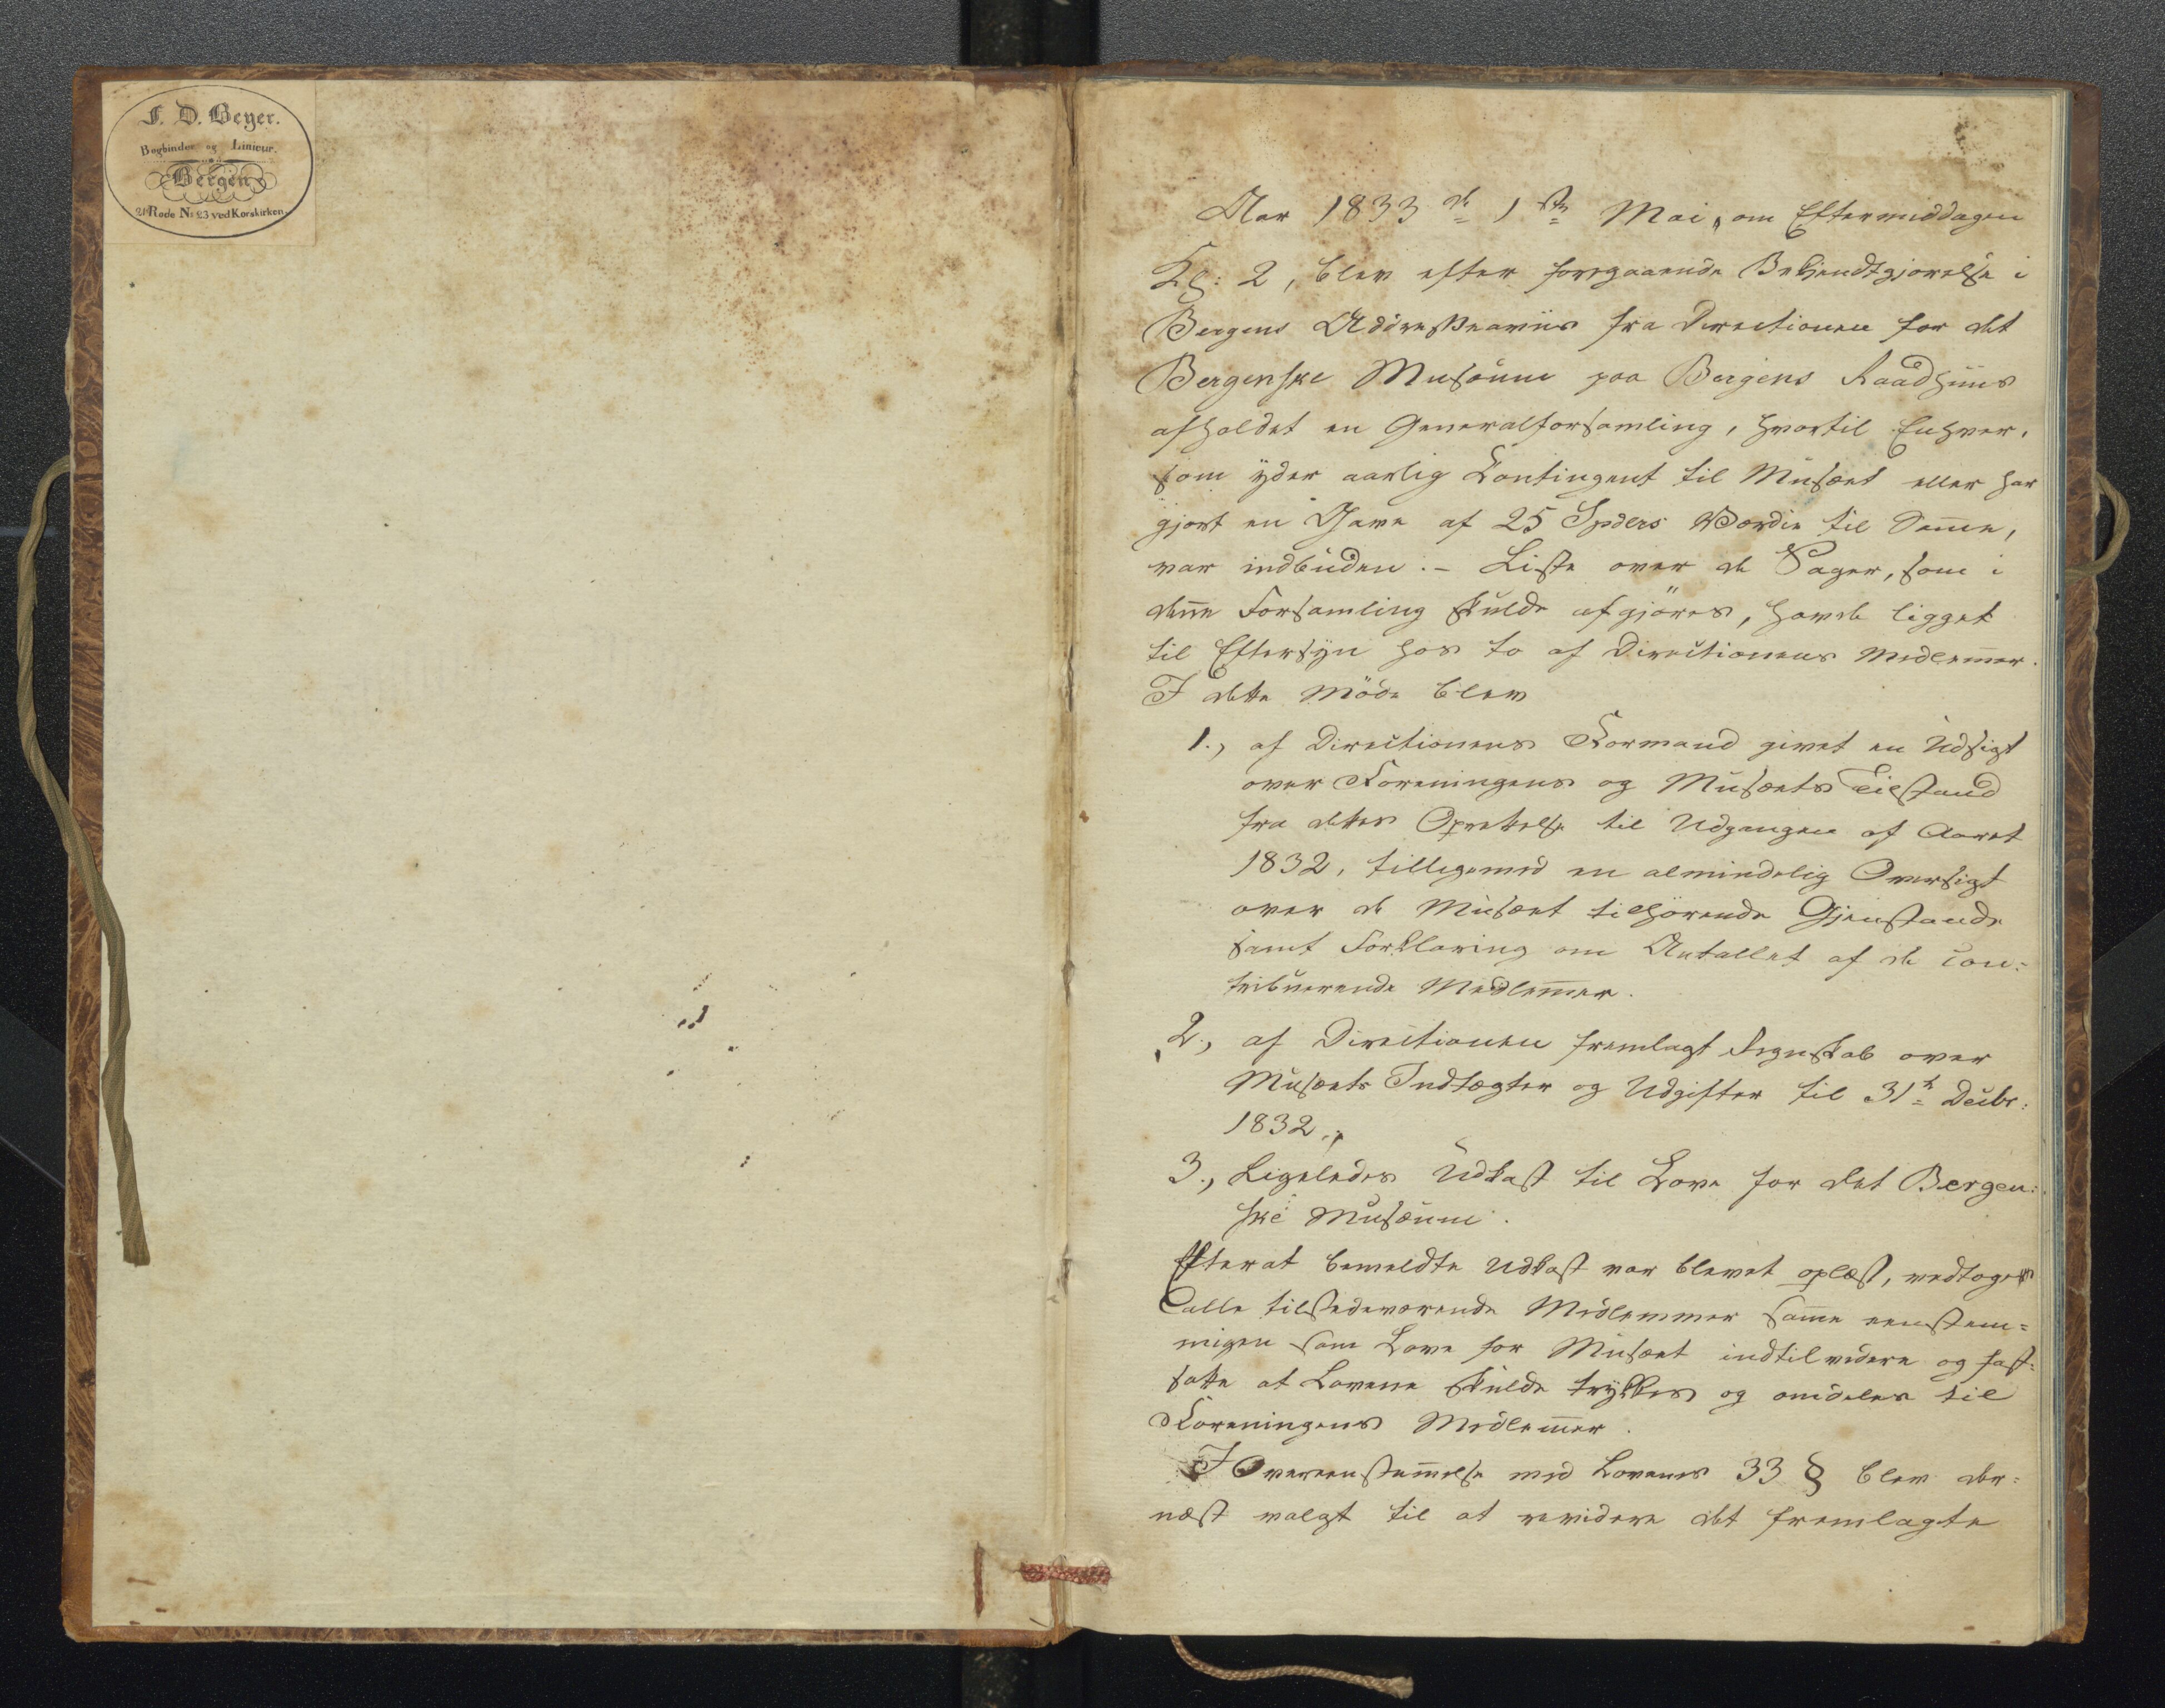 F. D. Beyer.
Bogbinder og Linieur.
Bergen
21 Rode No 23 ved Korskirken.
Aar 1833 d 1ste Mai, om Eftermiddagen
Kl: 2, blev efter foregaaende Bekjendtgjørelse i
Bergens Addresseaviis fra Directionen for det
Bergenske Musæum paa Bergens Raadhuus
afholdet en Generalforsamling, hvortil Enhver,
som yder aarlig Contingent til Musæet eller har
gjort en Gave af 25 Spders Værdie til Samme,
var indbuden. - Liste over de Sager, som i
denne Forsamling skulde afgjöres, havde ligget
til Eftersyn hos to af Directionens Medlemmer.
I dette Möde blev
1., af Directionens Formand givet en Udsigt
over Foreningens og Musæets Tilstand
fra dettes Oprettelse til Udgangen af Aaret
1832, tilligemed en almindelig Oversigt
over de Musæet tilhörende Gjenstande
samt Forklaring om Antallet af de con:
tribuerende Medlemmer.
2., af Directionen fremlagt Regnskab over
Musæets Indtægter og Udgifter til 31te Decbr:
1832.,
3., Ligeledes Udkast til Love for det Bergen:
ske Musæum.
Efterat bemeldte Udkast var blevet oplæst, vedtoges
alle tilstedeværende Medlemmer samme eenstem=
migen som Love for Musæet indtilvidere og fast:
satte at Lovene skulde trykkes og omdeles til
Foreningens Medlemmer.
I Overeenstemmelse med Lovenes 33 § blev der:
næst valgt til at revidere det fremlagte